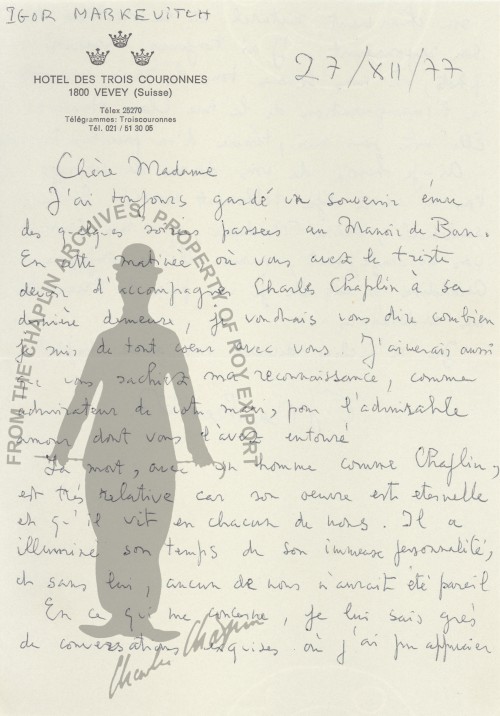 IGOR MARKEVITCH
HOTEL DES TROIS COURONNES
1800 VEVEY (Suisse)
Télex 25270
Télégrammes: Troiscouronnes
Tél. 021 / 51 30 05
27/XII/77
Chère Madame
J'ai toujours gardé un souvenir ému
des quelques soirées passées au Manoir de Ban.
En cette matinée où vous avez le triste
devoir d'accompagner Charles Chaplin à sa
dernière demeure, je voudrais vous dire combien
je suis de tout coeur avec vous. J'aimerais aussi
que vous sachiez ma reconnaissance, comme
admirateur de votre mari, pour l'admirable
amour dont vous l'avez entouré
La mort, avec un homme comme Chaplin,
est très relative car son oeuvre est eternelle
et qu'il vit en chacun de nous. Il a
illuminé son temps de son immense personnalité,
et sans lui, aucun de nous n'aurait été pareil
En ce qui me concerne, je lui sais grès
de conversations exquises où j'ai pu apprécier
FROM THE CHAPLIN ARCHIVES, PROPERTY OF ROY EXPORT
Charlie Chaplin